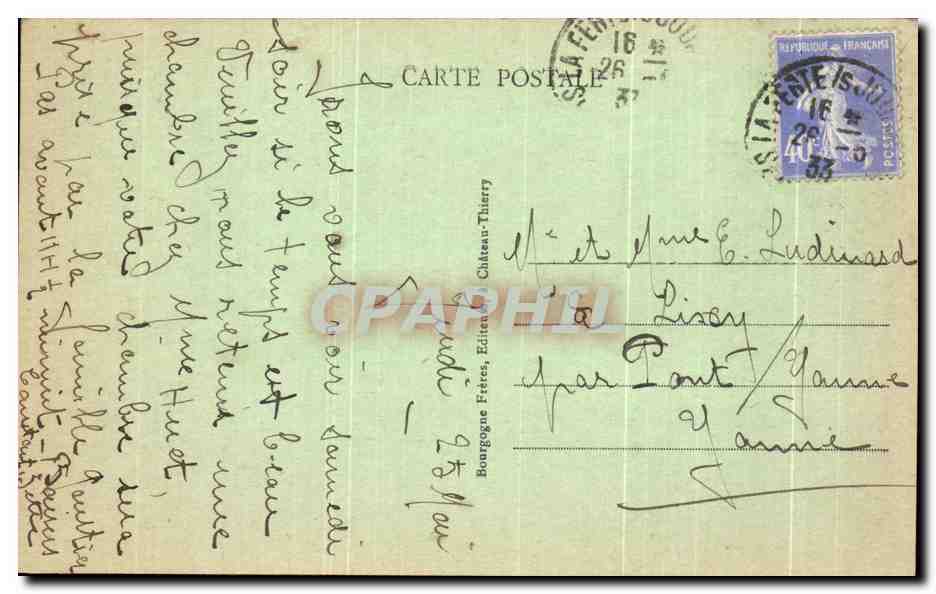 CARTE POSTALE
RÉPUBLIQUE FRANÇAISE
POSTES
40c
LA FERTE /S JOUARRE
16
26
33
Mr et Mme E. Ludinard
à Lizy
par Pont/Yonne
Yonne
Bourgogne Frères, Editeurs à Château-Thierry
CPAPHIL
Jeudi 25 Mai
Irons vous voir samedi
soir si le temps est beau
Veuillez nous retenir une
chambre chez Mme Huot,
puisque votre chambre sera
prise par la famille Gautier
Pas avant 11H½ minuit - Baisers